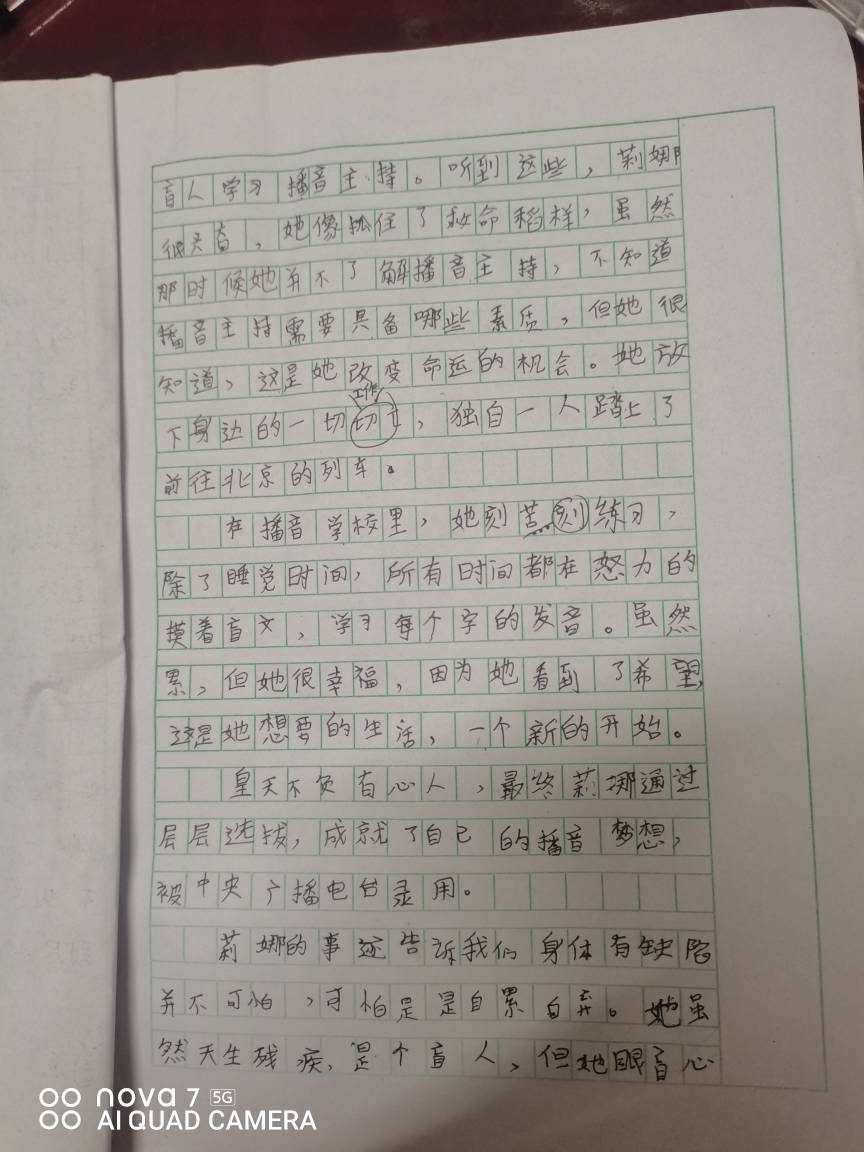 盲人学习播音主持。听到这些，莉娜
很兴奋，她像抓住了救命稻样，虽然
那时候她并不了解播音主持，不知道
播音主持需要具备哪些素质，但她很
知道，这是她改变命运的机会。她放
工作
下身边的一切切工，独自一人踏上了
前往北京的列车。
在播音学校里，她刻苦刻练习，
除了睡觉时间，所有时间都在怒力的
摸着盲文，学习每个字的发音。虽然
累，但她很幸福，因为她看到了希望，
这是她想要的生活，一个新的开始。
皇天不负有心人，最终莉娜通过
层层选拔，成就了自己的播音梦想，
被中央广播电台录用。
莉娜的事迹告诉我们身体有缺陷
并不可怕，可怕是是自累自弃。她虽
然天生残疾，是个盲人，但她眼盲心
nova 7 5G
AI QUAD CAMERA